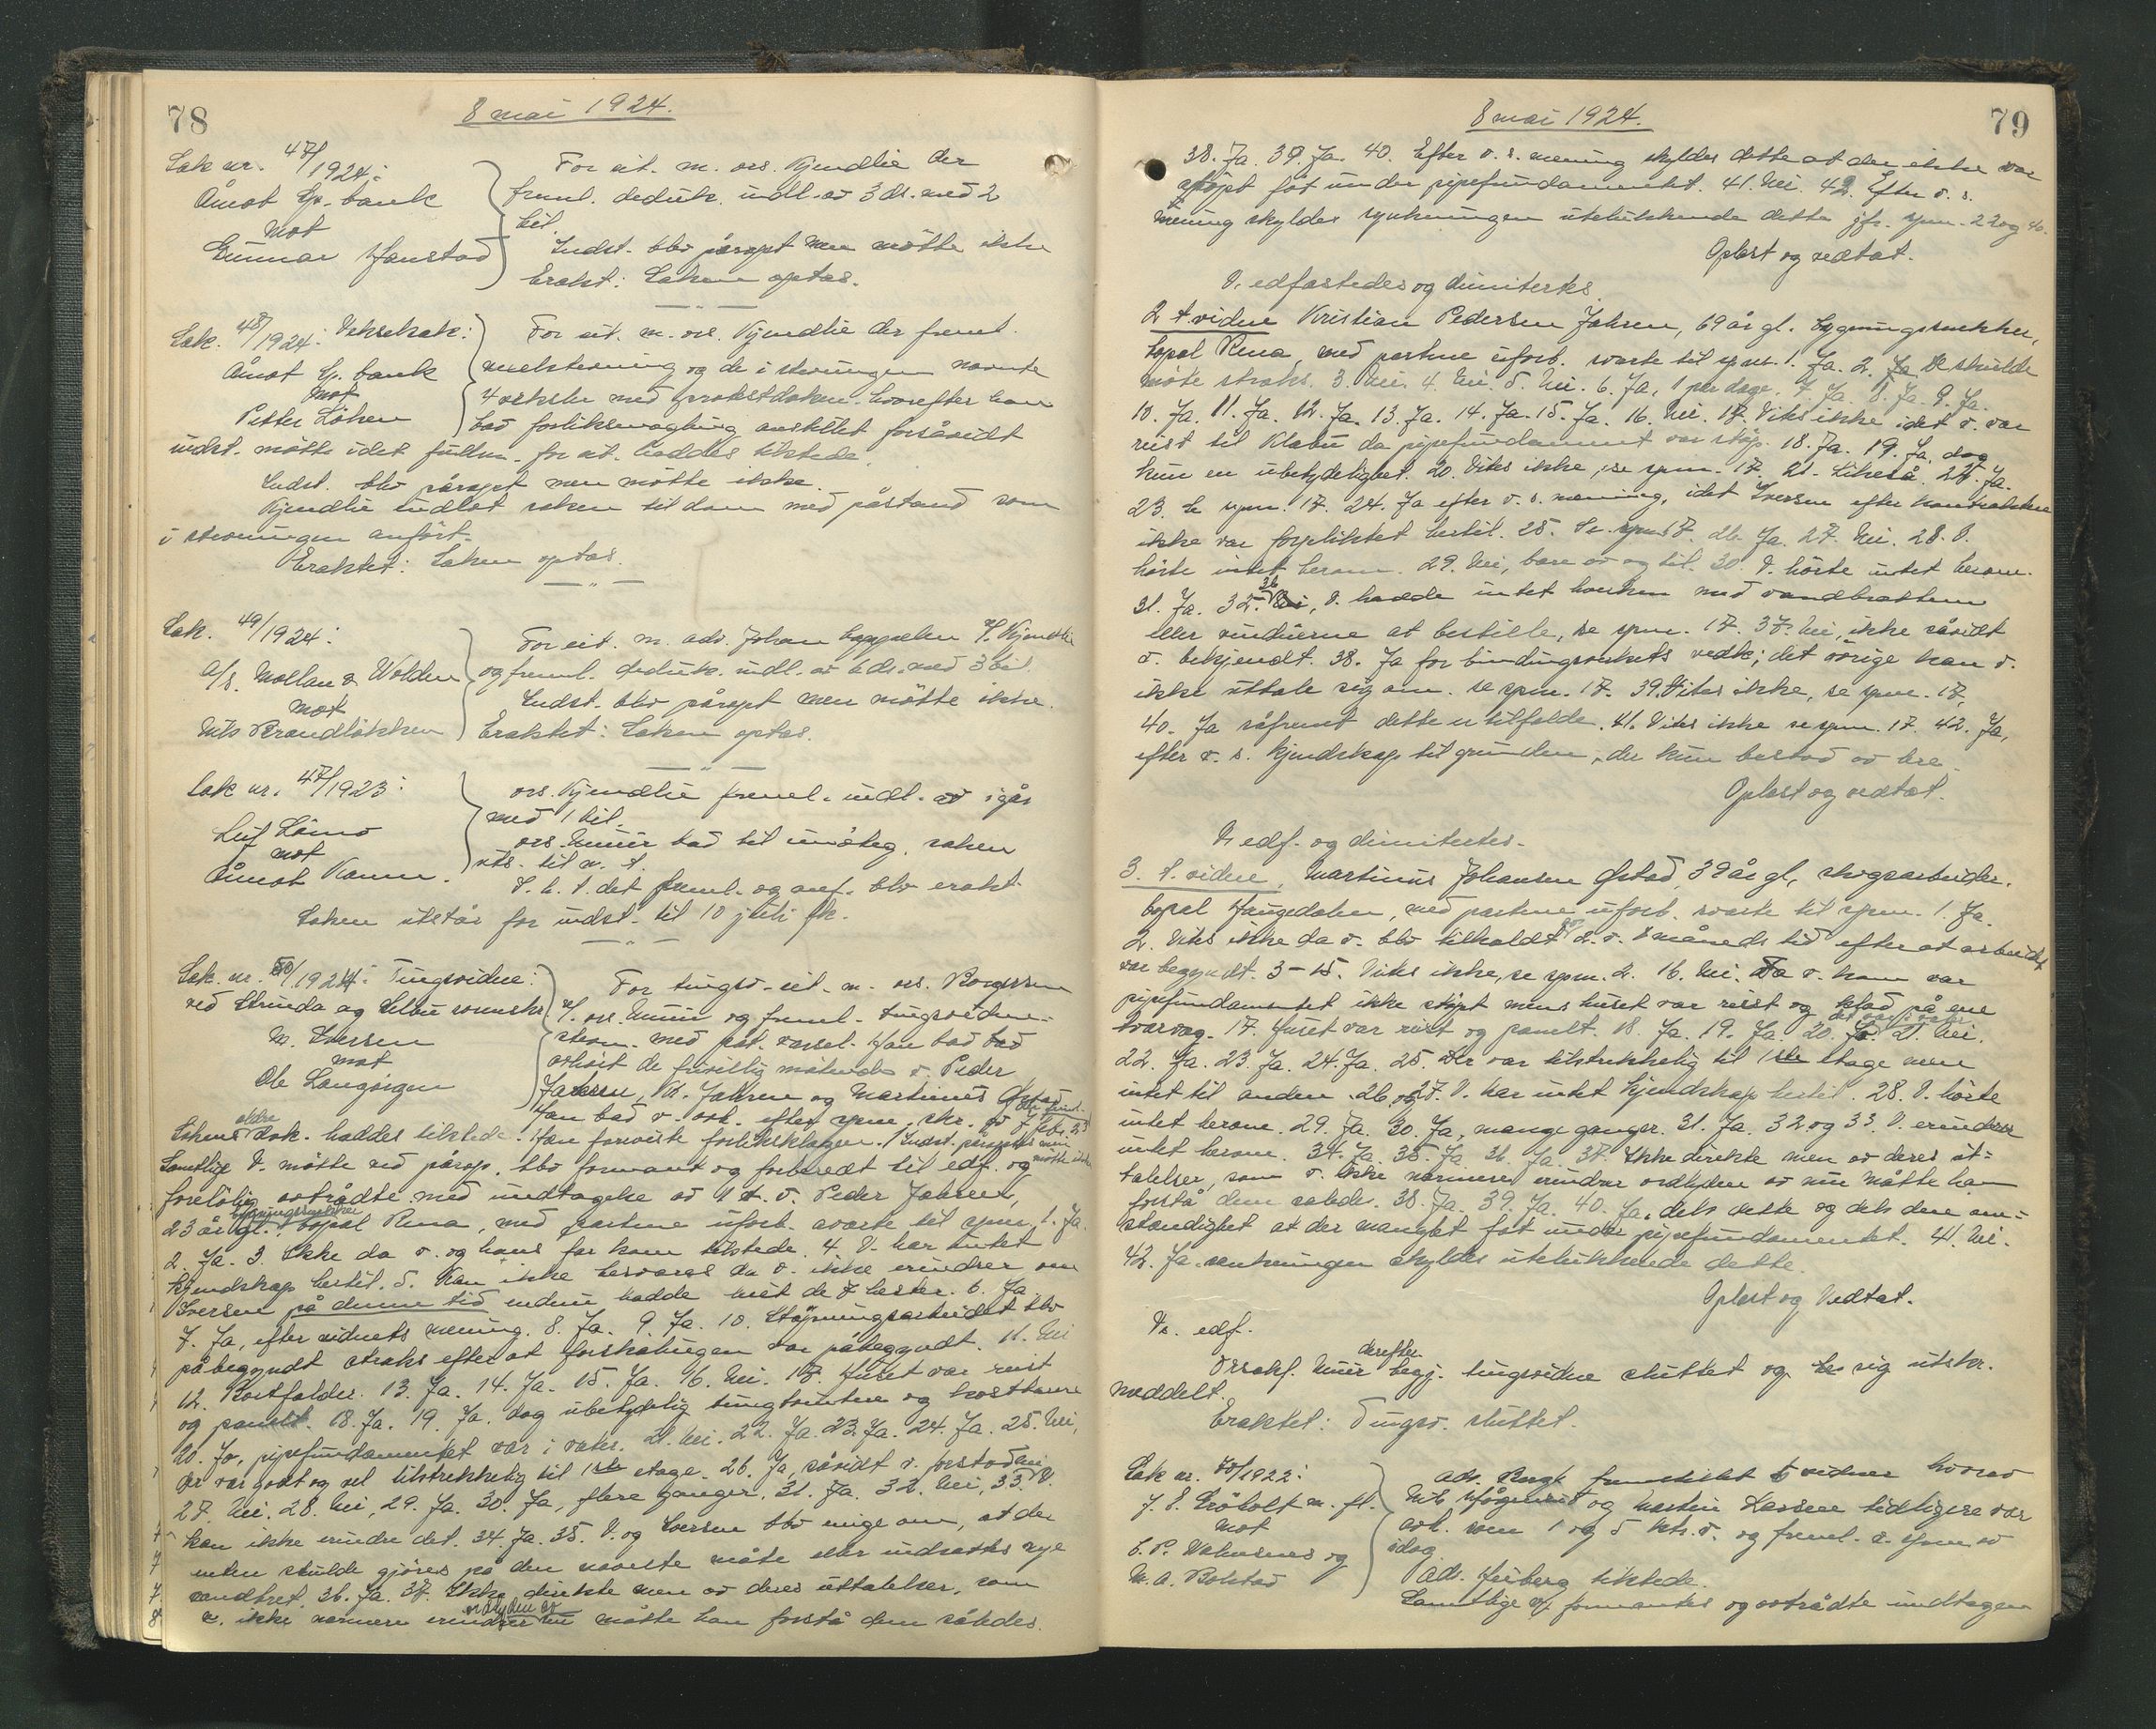 78
8 mai 1924.
Sak nr. 47/1924:
Åmot Sp. bank
mot
Gunnar Hanstad
For cit. m. ors. Kjendlie der
freml. deduk. indl. av 3 ds. med 2
bil.
Indst. blev påropt men mötte ikke
Erakt: Saken optas.
Sak. 48/1924: Vekselsak:
Åmot Sp. bank
mot
Petter Löken
For cit. m. ors. Kjendlie der freml.
vekselstevning og de i stevningen nævnte
4 veksler med protestdokum. hvorefter han
bad forliksmægling anstillet forsåvidt
indst. mötte i det fulltm. for cit. haddes tilstede.
Indst. blev påropt men mötte ikke.
Kjendlie indlot saken til dom med påstand som
i stevningen anfört.
Eraktet: Saken optas.
Sak. 49/1924:
A/S. Mollan & Wolden
mot
Nils Brandlökken
For cit. m. adv. Johan Cappelen v/ Kjendlie
og freml. deduk. indl. av 6 ds. med 3 bil.
Indst. blev påropt men mötte ikke.
Eraktet: Saken optas.
Sak nr. 47/1923:
Leif Lömo
mot
Åmot Komm.
ors. Kjendlie freml. indl. av igår
med 1 bil.
ors. Muur bad til imöteg. saken
uts. til n. t.
S. h. t. det freml. og anf. blev erakt.
Saken utstår for indst. til 10 juli fk.
Sak. nr. 50/1924: Tingsvidne:
ved Strinda og Selbu sorenskr.
M. Iversen
mot
Ole Langörgen
For tingsv. cit. m. ors. Borgersen
v/. ors. Muur og freml. tingsvidne-
stevn. med påt. varsel. Han bad
avhört de frivillig mötende v. Peder
Jahren, Kr. Jahren og Martinus Öpstad
Han bad v. avh. efter spm. skr. av 7 febr. 23
Sakens ældre dok. haddes tilstede. Han fraveik forliksklagen. Indst. påroptes men mötte ikke
Samtlige V. mötte ved pårop, blev formant og forberedt til edf. og
foreløbig avtrådte med undtagelse av 1 t. v. Peder Jahren,
23 år gl., bygningssnekker bopæl Rena, med partene ubesl. svarte til spm. 1. Ja.
2. Ja. 3. Ikke da v. og hans far kom tilstede. 4. V. har intet
kjendskap hertil. 5. Kan ikke besvares da v. ikke erindrer om
Iversen på denne tid endnu hadde leiet de 7 hester. 6. Ja.
7. Ja, efter vidnets mening. 8. Ja. 9. Ja. 10. Støpningsarbeidet blev
påbegyndt straks efter at forskalingen var påbegyndt. 11. Nei
12. Bortfalder. 13. Ja. 14. Ja. 15. Ja. 16. Nei. 17. Huset var reist
og panelt. 18. Ja. 19. Ja. dog ubetydelig
20. Ja, pipefundamentet var i vater. 21. Nei. 22. Ja. 23. Ja. 24. Ja. 25. Nei,
der var godt og vel tilstrekkelig til 1ste etage. 26. Ja, såvidt v. forstod
27. Nei. 28. Nei, 29. Ja. 30. Ja, flere ganger. 31. Ja. 32. Nei, 33. V.
kan ikke erindre det. 34. Ja. 35. V. og Iversen blev enige om, at det
enten skulde gjöres på den nævnte måte eller indsættes nye
vandbret. 36. Ja. 37. Ikke direkte men av deres uttalelser, som
v. ikke nærmere erindrer ordlyden av nu måtte han forstå dem således.
79
8 mai 1924.
38. Ja. 39. Ja. 40. Efter v. s. mening skyldes dette at der ikke var
stöpt fot under pipefundamentet. 41. Nei. 42. Efter v. s.
mening skyldes synkningen utelukkende dette jfr. spm. 22 og 40.
Oplest og vedtat.
V. edfæstedes og dimitertes.
2 t. vidne Kristian Pedersen Jahren, 69 år gl. bygningssnekker,
bopæl Rena, med partene ubesl. svarte til spm. 1. Ja. 2. Ja De skulde
møte straks. 3. Nei. 4. Nei. 5. Nei. 6. Ja, 1 par dage. 7. Ja. 8. Ja. 9. Ja.
10. Ja. 11. Ja. 12. Ja. 13. Ja. 14. Ja. 15. Ja. 16. Nei. 17. Vites ikke idet v. var
reist til Klæbu da pipefundamentet var støp. 18. Ja. 19. Ja, dog
kun en ubetydelighet. 20. Vites ikke, se spm. 17. 21. Likeså. 22. Ja.
23. Se spm. 17. 24. Ja efter v. s. mening, idet Iversen efter kontrakten
ikke var forpliktet hertil. 25. Se spm 17. 26. Ja. 27. Nei. 28. V.
hörte intet herom. 29. Nei, bare av og til. 30. V. hörte intet herom.
31. Ja. 32-36 Nei, V. hadde intet hverken med vandbrættene
eller vinduerne at bestille, se spm. 17. 37. Nei, ikke såvidt
v. bekjendt. 38. Ja for bindingsverkets vedk; det övrige kan v.
ikke uttale sig om. se spm. 17. 39. Vites ikke, se spm. 17.
40. Ja såfremt dette er tilfælde. 41. Vites ikke se spm. 17. 42. Ja,
efter v. s. kjendskap til grunden, der kun bestod av lere.
Oplest og vedtat.
V. edf. og dimitertes.
3. t. vidne, Martinus Johansen Öpstad, 39 år gl., skogsarbeider.
bopæl Haugedalen, med partene ubesl. svarte til spm. 1. Ja.
2. Vites ikke da v. blev tilkaldt 2 a 3 måneds tid efter at arbeidet
var begyndt. 3-15. Vites ikke, se spm. 2. 16. Nei. Da v. kom var
pipefundamentet ikke støpt mens huset var reist og stod på sne
tvervæg. 17. Huset var reist og panelt. 18. Ja. 19. Ja. 20. Ja det var i vater. 21. Nei.
22. Ja. 23. Ja. 24. Ja. 25. Der var tilstrekkelig til 1ste etage men
intet til anden. 26 og 27. V. har intet kjendskap hertil. 28. V. hörte
intet herom. 29. Ja. 30. Ja, mange ganger. 31. Ja. 32 og 33. V. erindrer
intet herom. 34. Ja. 35. Ja. 36. Ja. 37. Ikke direkte men av deres ut=
talelser, som v. ikke nærmere erindrer ordlyden av nu måtte han
forstå dem således. 38. Ja. 39. Ja. 40. Ja, dels dette og dels den om=
stændighet at der manglet fot under pipefundamentet. 41. Nei.
42. Ja. senkningen skyldes utelukkende dette.
Oplest og Vedtat.
V. edf.
Orsakf. Muur derefter begj. tingsvidne sluttet og sig utskr.
meddelt.
Eraktet: Tingsv. sluttet.
Sak nr. 70/1922:
J. S. Kröbolt m. fl.
mot
C. P. Velmsnes og
M. A. Bolstad
adv. Bergh fremstillet 6 vidner hvorav
Nils og Martin Larsen tidligere var
avh. som 1 og 5 ktr. v. og freml. s. spm av
idag
Adv. Heiberg tilstede.
Samtlige v. formantes og avtrådte undtagen